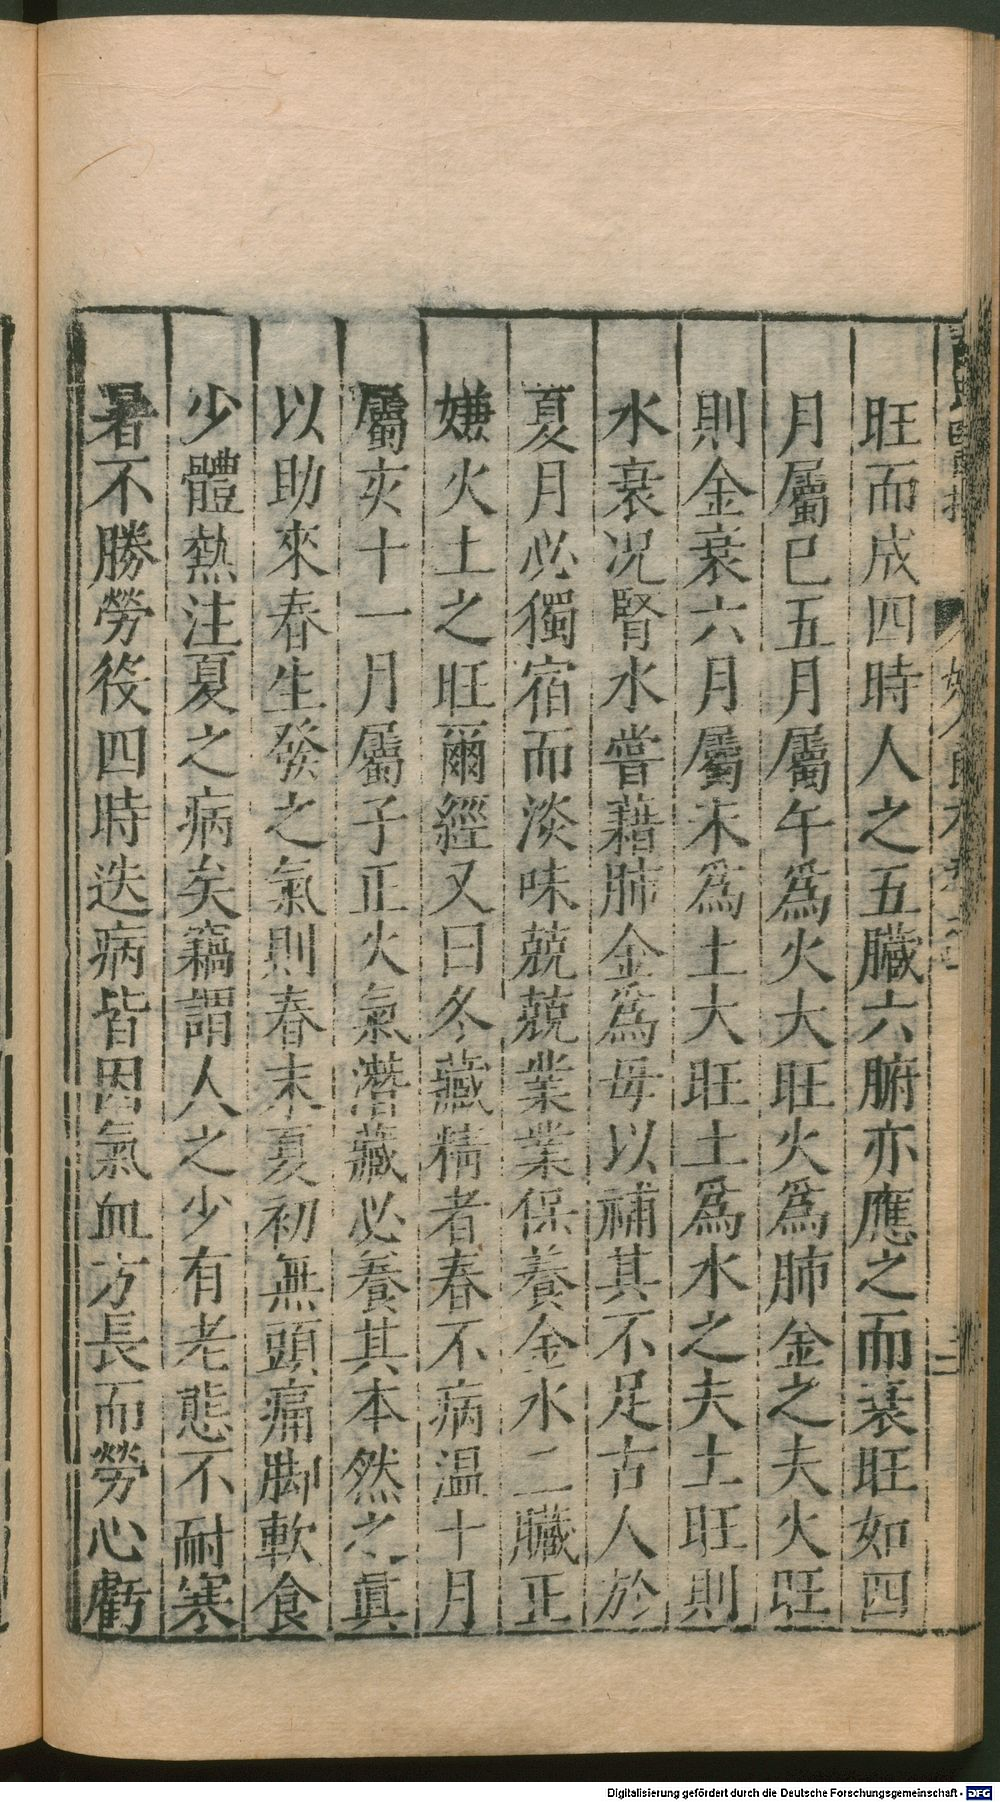 旺而成四時人之五臟六腑亦應之而衰旺如四
月屬巳五月屬午爲火大旺火爲肺金之夫火旺
則金衰六月屬未爲土大旺土爲水之夫土旺則
水衰况腎水嘗藉肺金爲母以補其不足古人於
夏月必獨宿而淡味兢兢業業保養金水二臟正
嫌火土之旺爾經又曰冬藏精者春不病温十月
屬亥十一月屬子正火氣潛藏必養其本然之眞
以助來春生發之氣則春末夏初無頭痛脚軟食
少體熱注夏之病矣竊謂人之少有老態不耐寒
暑不勝勞役四時迭病皆因氣血方長而勞心虧
Digitalisierung gefördert durch die Deutsche Forschungsgemeinschaft - DFG